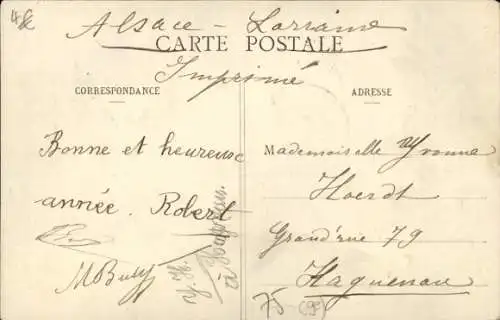 Alsace - Lorraine
CARTE POSTALE
Imprimé
CORRESPONDANCE
ADRESSE
Bonne et heureuse
année. Robert
Mademoiselle Yvonne
Hoerdt
Grand'rue 79
Haguenau
75